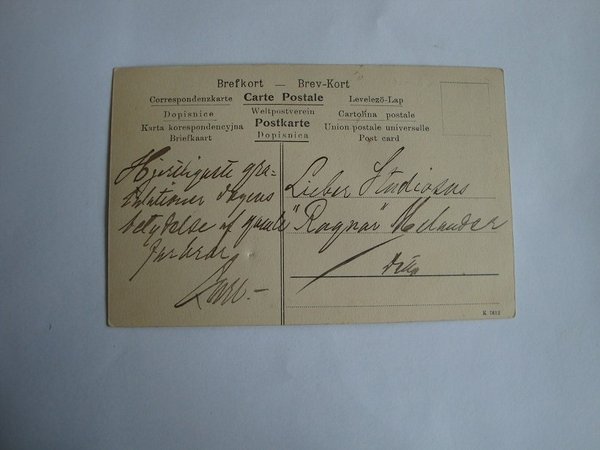 Brefkort — Brev-Kort
Correspondenzkarte Carte Postale Levelező-Lap
Dopisnice Weltpostverein Cartolina postale
Karta korespondencyjna Postkarte Union postale universelle
Briefkaart Dopisnica Post card
Hjertligaste gra-
tulationer dagens
betydelse af gamle
farbror
Lieber Studiosus
"Ragnar" Melander
K 1612